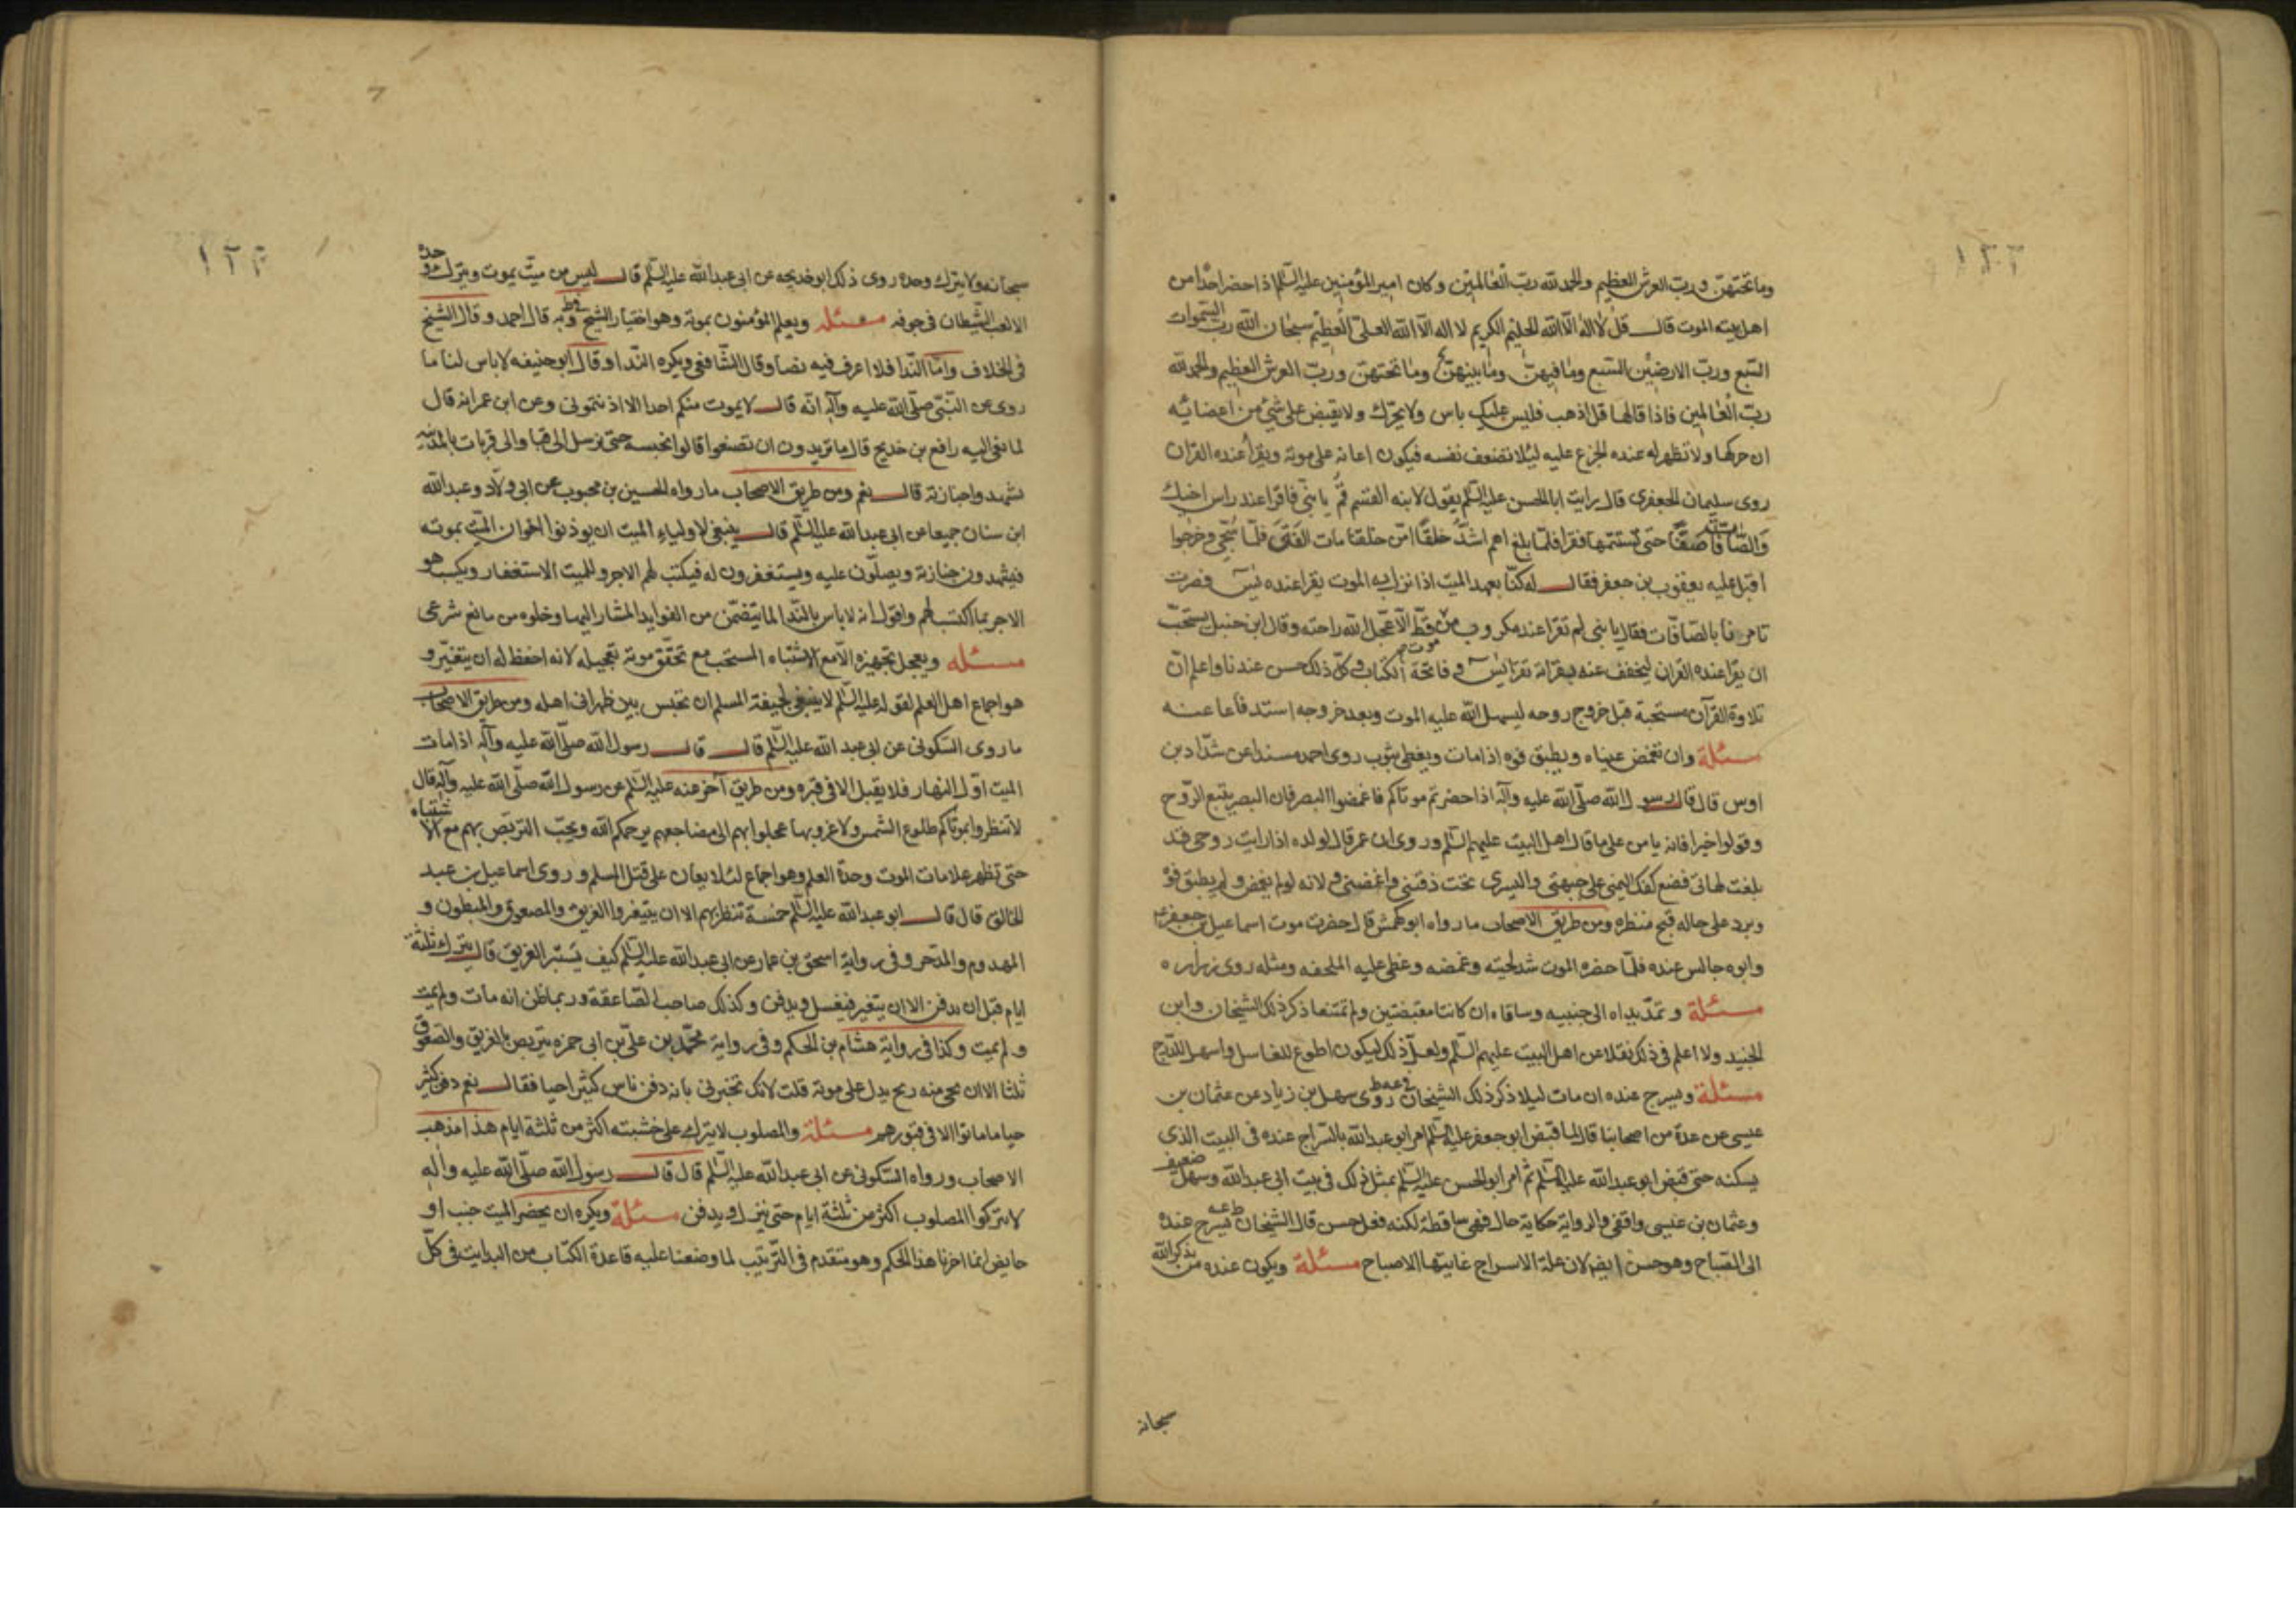 وما تحتهن ورب العرش العظيم والحمد لله رب العالمين وكان امير المؤمنين عليه السلم اذا حضر احدا من
اهل بيته الموت قال قل لا اله الا الله الحليم الكريم لا اله الا الله العلى العظيم سبحان الله رب السموات
السبع ورب الارضين السبع وما فيهن وما بينهن وما تحتهن ورب العرش العظيم والحمد لله
رب العالمين فاذا قالها قل اذهب فليس عليك باس ولا يحرك ولا يقبض على شئ من اعضائه
ان حركها ولا تظهر له عنده الجزع عليه ليلا تضعف نفسه فيكون اعانة على موته ويقرأ عنده القران
روى سليمان الجعفرى قال رايت ابا الحسن عليه السلم يقول لابنه القسم قم يا بنى فاقرا عند راس اخيك
والصافات صفا حتى تستتمها فقرا فلما بلغ اهم اشد خلقا امن خلقنا مات الفتى فلما سجى وخرجوا
اقبل عليه يعقوب بن جعفر فقال له كنا نعهد الميت اذا نزل به الموت يقرا عنده يس فصرت
تامرنا بالصافات فقال يا بنى لم تقرا عند مكروب من موت قط الا عجل الله راحته وقال ابن حنبل يستحب
ان يقرا عنده القران ليخفف عنه بقرائة تقرا يس وفاتحة الكتاب وكل ذلك حسن عندنا واعلم ان
تلاوة القرآن مستحبة قبل خروج روحه ليسهل الله عليه الموت وبعد خروجه استدفاعا عنه
مسئلة وان تغمض عيناه ويطبق فوه اذا مات ويغطى بثوب روى احمد مسندا عن شداد بن
اوس قال قال رسول الله صلى الله عليه وآله اذا حضرتم موتاكم فاغمضوا البصر فان البصر يتبع الروح
وقولوا خيرا فانه يامن على ما قال اهل البيت عليهم السلم وروى ان عمر قال لولده اذا رايت روحى قد
بلغت لهاتى فضع كفك اليمنى على جبهتى واليسرى تحت ذقنى واغمضنى ولانه لو لم يغمض ولم يطبق فوه
وبرد على حاله قبح منظره ومن طريق الاصحاب ما رواه ابو كهمش قال حضرت موت اسماعيل بن جعفر
وابوه جالس عنده فلما حضره الموت شد لحيته وغمضه وغطى عليه الملحفه ومثله روى زراره
مسئلة وتمد يداه الى جنبيه وساقاه ان كانتا منقبضتين ولم تمتنعا ذكر ذلك الشيخان وابن
الجنيد ولا اعلم فى ذلك نقلا عن اهل البيت عليهم السلم ولعل ذلك ليكون اطوع للغاسل واسهل للدرج
مسئلة ويسرج عنده ان مات ليلا ذكر ذلك الشيخان روى سهل بن زياد عن عثمان بن
عيسى عن عدة من اصحابنا قال لما قبض ابو جعفر عليه السلم امر ابو عبد الله بالسراج عنده فى البيت الذى
يسكنه حتى قبض ابو عبد الله عليه السلم ثم امر ابو الحسن عليه السلم بمثل ذلك فى بيت ابى عبد الله وسهل ضعيف
وعثمان بن عيسى واقفى والرواية حكاية حال فهى ساقطة لكنه فعل حسن قال الشيخان يسرج عنده
الى الصباح وهو حسن ايضا لان علة الاسراج غايتها الاصباح مسئلة ويكون عنده من يذكر الله
سبحانه
سبحانه ولا يترك وحده روى ذلك ابو خديجه عن ابى عبد الله عليه السلم قال ليس من ميت يموت ويترك وحده
الا لعب الشيطان فى جوفه مسئله ويعلم المؤمنون بموته وهو اختيار الشيخ وبه قال احمد وقال الشيخ
فى الخلاف واما الندا فلا اعرف فيه نصا وقال الشافعى ويكره الندا وقال ابو حنيفه لا باس لنا ما
روى عن النبى صلى الله عليه وآله انه قال لا يموت منكم احدا الا اذنتمونى وعن ابن عمر انه قال
لما نعى اليه رافع بن خديج قال ما تريدون ان تصنعوا قالوا نحبسه حتى نرسل الى قبا والى قريات بالمدينه
يشهدوا جنازته قال نعم ومن طريق الاصحاب ما رواه الحسين بن محبوب عن ابى ولاد وعبد الله
ابن سنان جميعا عن ابى عبد الله عليه السلم قال ينبغى لاولياء الميت ان يوذنوا اخوان الميت بموته
فيشهدون جنازته ويصلون عليه ويستغفرون له فيكتب لهم الاجر وللميت الاستغفار ويكسب هو
الاجر بما اكتسب لهم واقول انه لا باس بالندا لما يتضمن من الفوايد المشار اليها وخلوه من مانع شرعى
مسئله ويعجل تجهيزه الا مع الاشتباه المستحب مع تحقق موته تعجيله لانه احفظ له ان يتغير و
هو اجماع اهل العلم لقوله عليه السلم لا ينبغى لجيفة المسلم ان تحبس بين ظهرانى اهله ومن طريق الاصحاب
ما روى السكونى عن ابى عبد الله عليه السلم قال قال رسول الله صلى الله عليه وآله اذا مات
الميت اول النهار فلا يقبل الا فى قبره ومن طريق آخر عنه عليه السلم عن رسول الله صلى الله عليه وآله قال
لا تنظروا بموتاكم طلوع الشمس ولا غروبها عجلوا بهم الى مضاجعهم يرحمكم الله ويجب التربص بهم مع الاشتباه
حتى تظهر علامات الموت وحدة العلم وهو اجماع لئلا يعان على قتل المسلم وروى اسماعيل بن عبد
الخالق قال قال ابو عبد الله عليه السلم خمسة تنظر بهم الا ان يتغيروا الغريق والمصعوق والمبطون و
المهدوم والمدخر وفى رواية اسحق بن عمار عن ابى عبد الله عليه السلم كيف يستبر الغريق قال يترك ثلثة
ايام قبل ان يدفن الا ان يتغير فيغسل ويدفن وكذلك صاحب الصاعقة وربما ظن انه مات ولم يمت
ولم يمت وكذا فى رواية هشام بن الحكم وفى رواية محمد بن على بن ابى حمزه يتربص بالغريق والصعوق
ثلثا الا ان يجى منه ريح يدل على موته قلت لانك تخبرنى بانه دفن ناس كثير احيا فقال نعم دفن كثير
حيا ما ماتوا الا فى قبورهم مسئلة والمصلوب لا يترك على خشبته اكثر من ثلثة ايام هذا مذهب
الاصحاب ورواه السكونى عن ابى عبد الله عليه السلم قال قال رسول الله صلى الله عليه وآله
لا تتركوا المصلوب اكثر من ثلثة ايام حتى ينزل ويدفن مسئلة ويكره ان يحضر الميت جنب او
حايض انما اخرنا هذا الحكم وهو متقدم فى الترتيب لما وضعنا عليه قاعدة الكتاب من البدايت فى كل